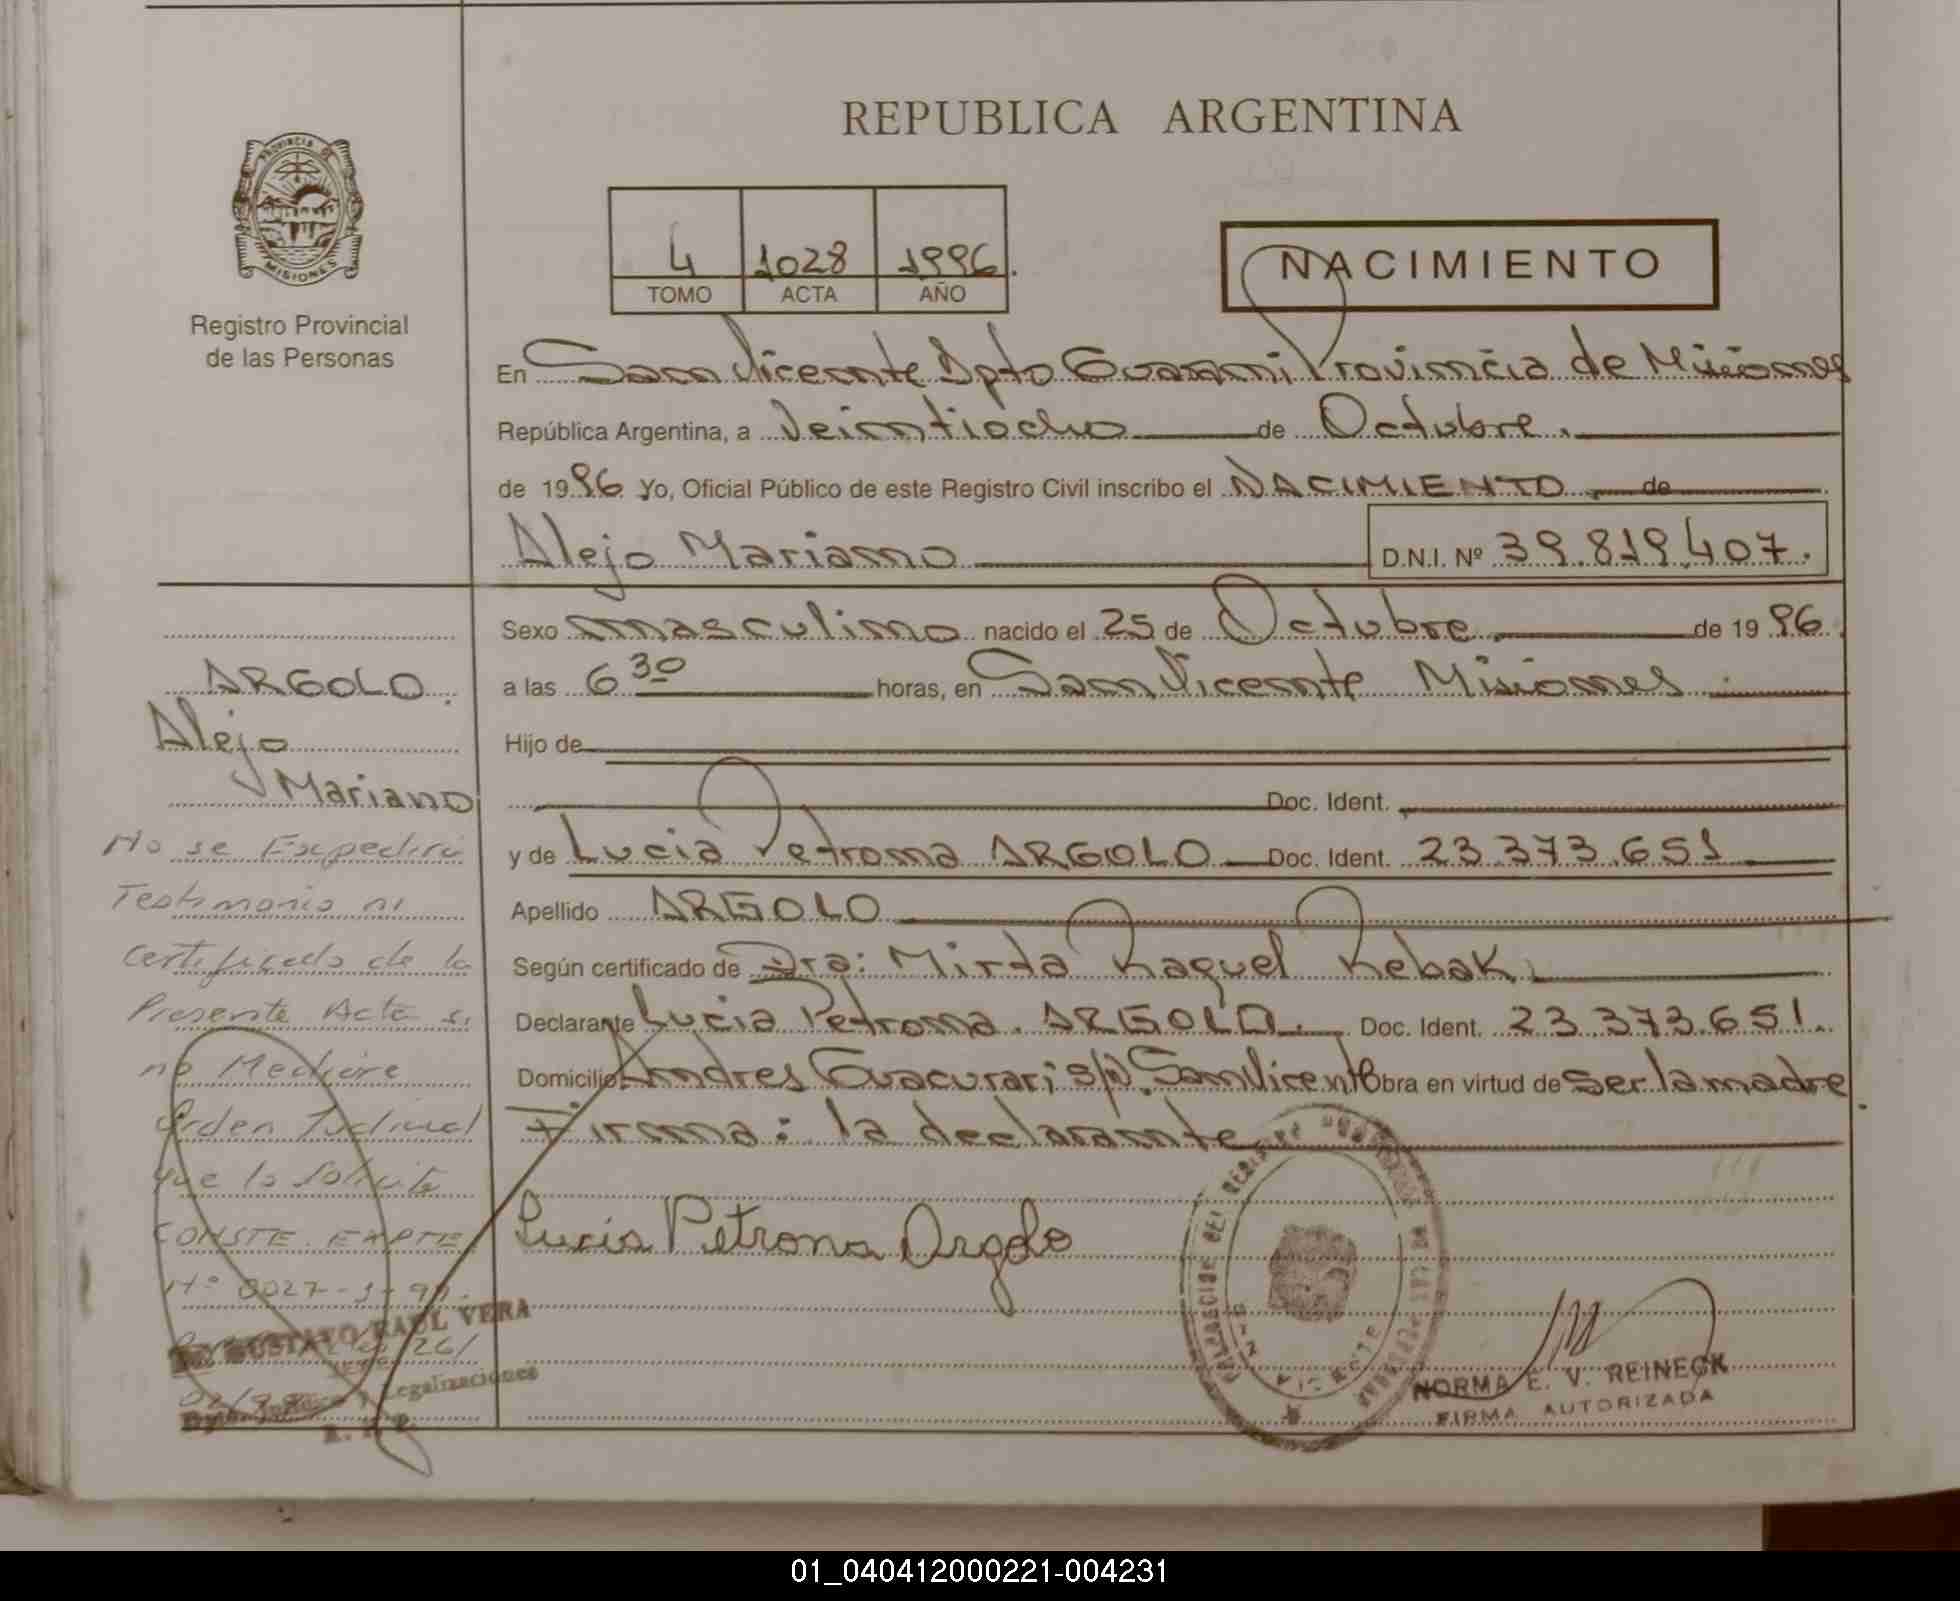 REPUBLICA ARGENTINA
PROVINCIA DE
MISIONES
Registro Provincial
de las Personas
4 1028 1996.
TOMO ACTA AÑO
NACIMIENTO
En San Vicente Dpto Guaraní Provincia de Misiones
República Argentina, a Veintiocho de Octubre.
de 1996 Yo, Oficial Público de este Registro Civil inscribo el NACIMIENTO de
Alejo Mariano D.N.I. Nº 39.819.407.
Sexo masculino nacido el 25 de Octubre de 1996.
a las 6 30 horas, en San Vicente Misiones
Hijo de
Doc. Ident.
y de Lucia Petrona ARGOLO Doc. Ident. 23.373.651
Apellido ARGOLO
Según certificado de Dra: Mirta Raquel Rebak
Declarante Lucia Petrona ARGOLO. Doc. Ident. 23.373.651.
Domicilio Andres Guacurari s/n San Vicente Obra en virtud de ser la madre.
Firma: la declarante
Lucia Petrona Argolo
NORMA E. V. REINECK
FIRMA AUTORIZADA
ARGOLO.
Alejo
Mariano
No se Expedira
Testimonio ni
Certificado de la
Presente Acta si
no Mediare
Orden Judicial
que lo Solicite
CONSTE. EXPTE
Nº 0027-
GUSTAVO RAUL VERA
Legalizaciones
01_040412000221-004231